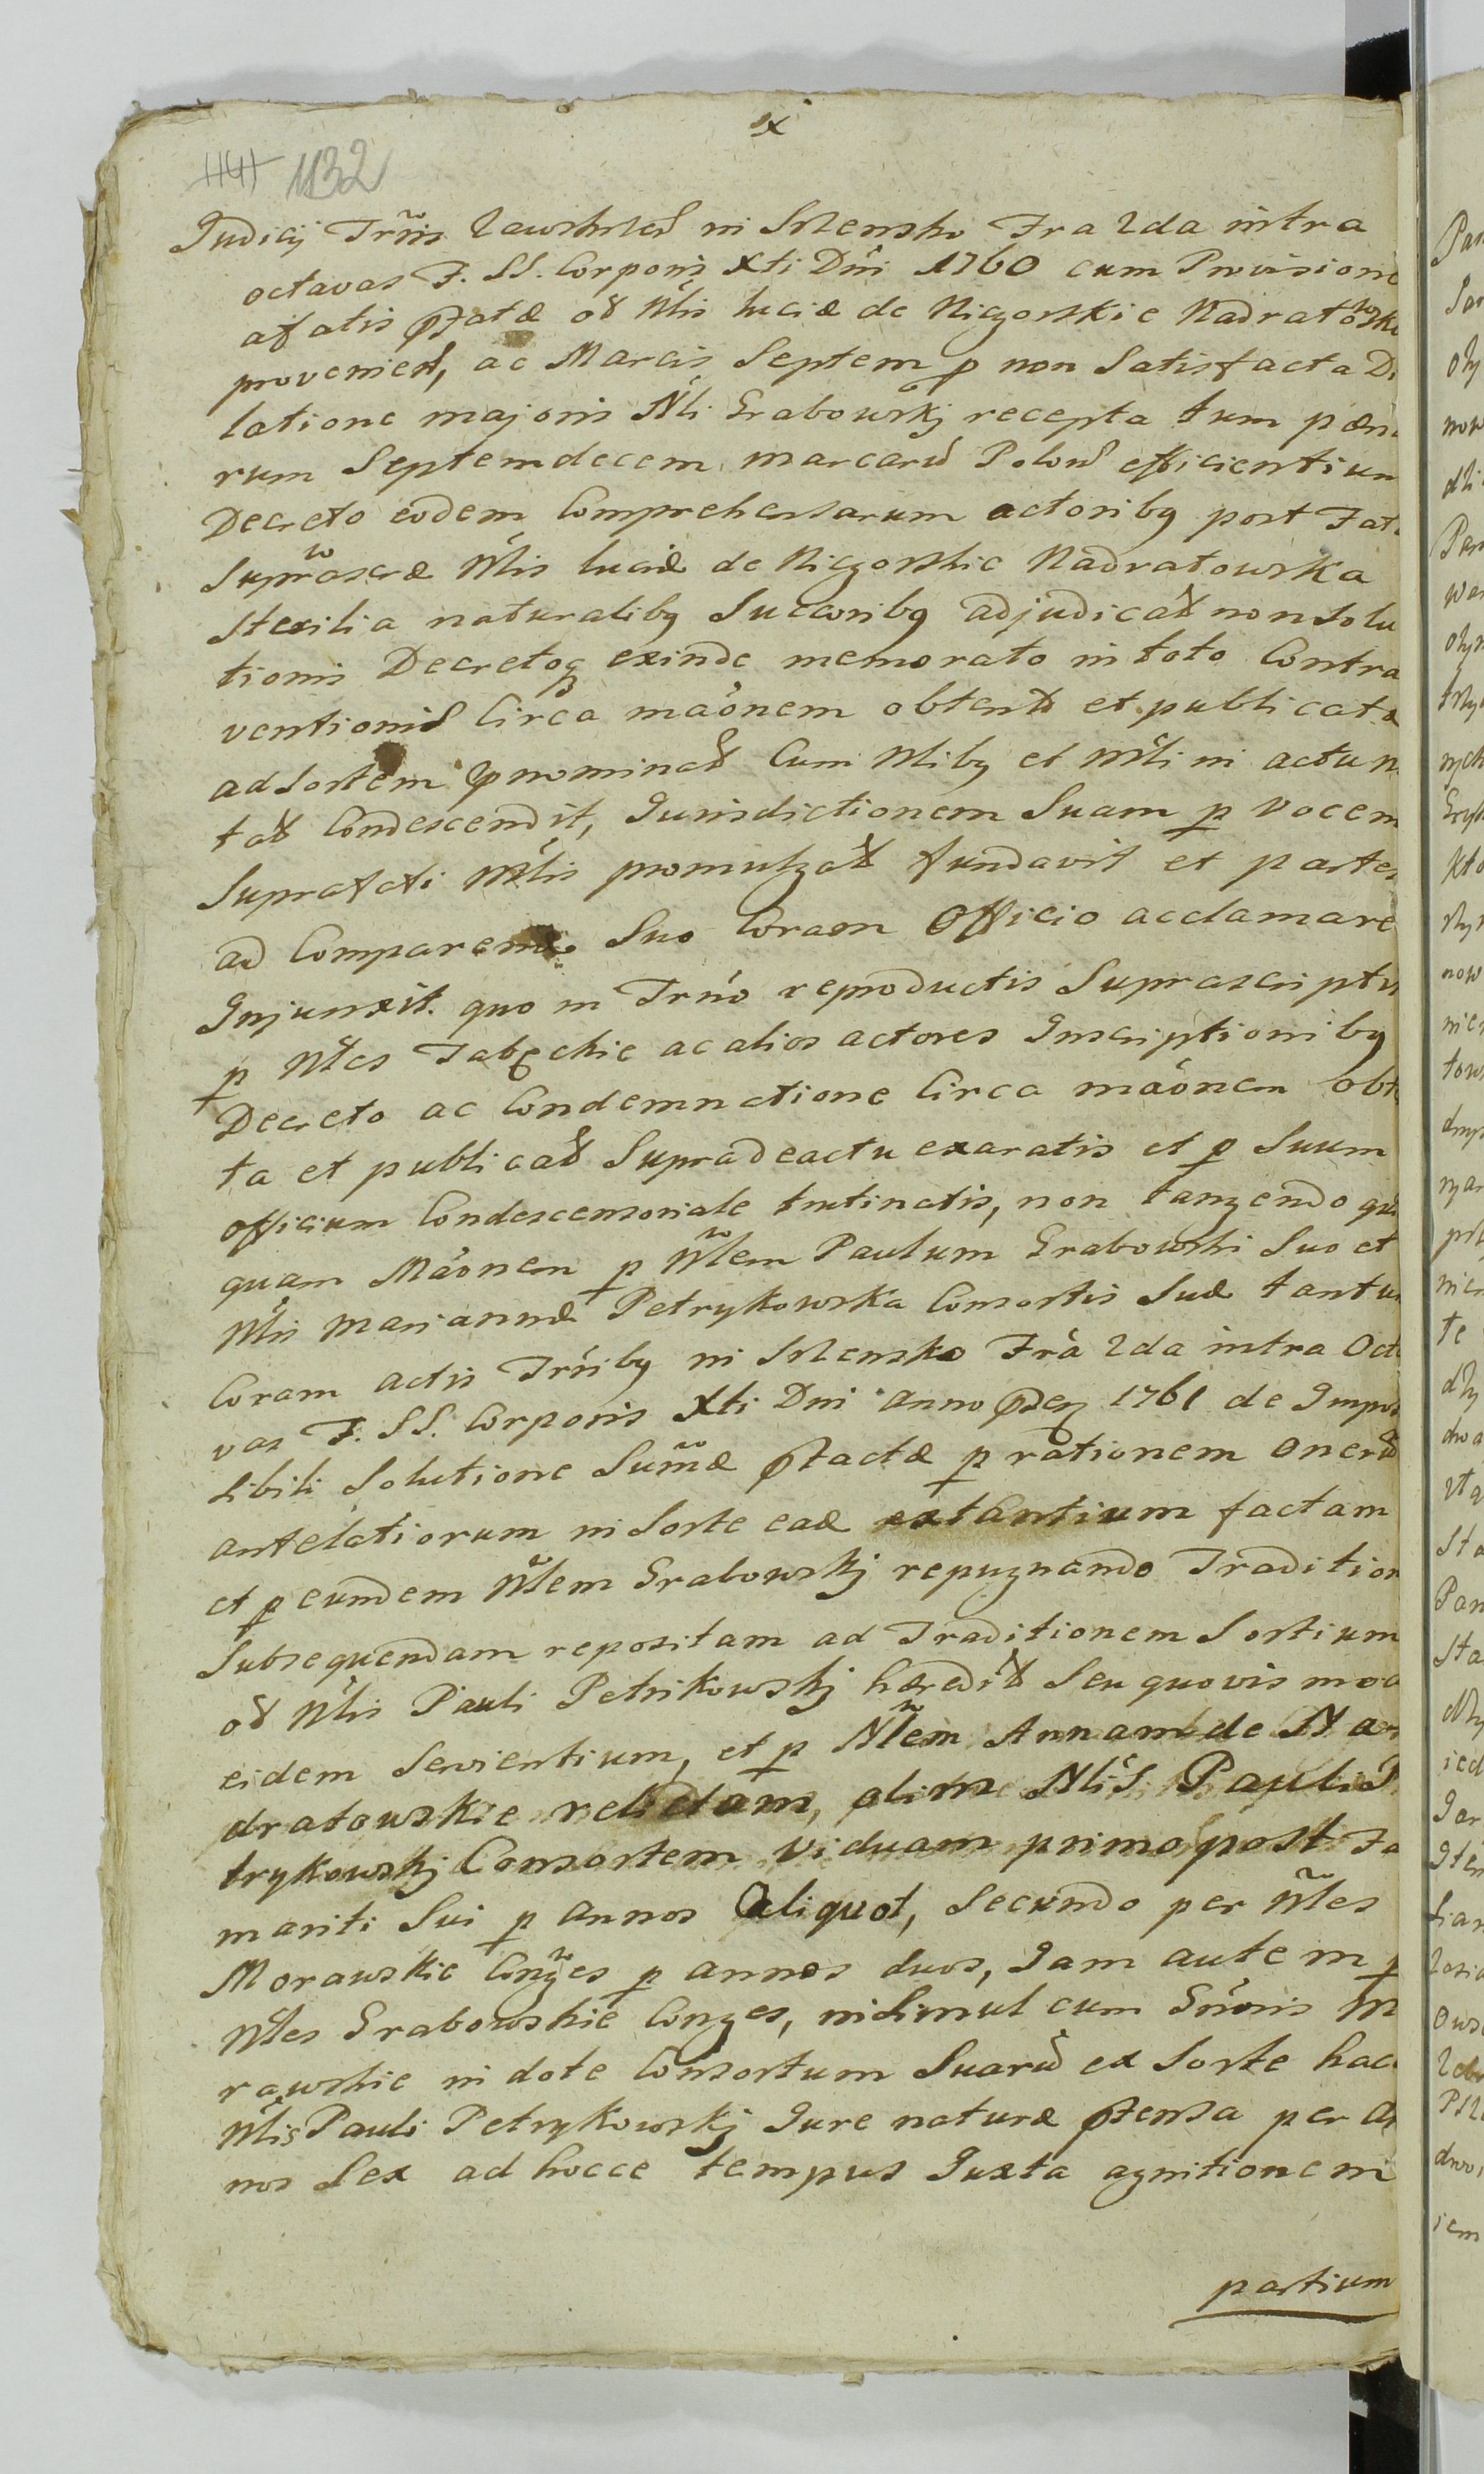 x
1141 1132
Judicij Trñis Zawskrzeñ in Szrensko Fra 2da intra
octavas F. SS. Corporis Xti Dñi 1760 cum Provisione
afatis pfatæ oð Nlis Luciæ de Niczorskie Nadratowska
provenień, ac Marcis Septem p non Satisfacta Di
latione majoris Nli Grabowskj recepta tum pæna
rum Septemdecem marcarũ Polonˢ efficientium
Decreto eodem Comprehensarum actoribq post Fat
Suprascræ Nlis Luciæ de Niczorskie Nadratowska
Sterilia naturalibq Succoribq adjudicat non Solu
tionis Decretoq exinde memorato in toto Contra
ventionis Circa maõnem obtent et publicata
ad Sortem pnominat Cum Nlibq et Mtli in actu n
tat Condescendit, Jurisdictionem Suam p vocem
Suprafati Mtlis promulgat fundavit et partes
ad Comparend Suo Coram Officio acclamare
Injunxit. quo in Trño reproductis Suprascriptis
p Nles Jabęckie ac alios actores Inscriptionibq
Decreto ac Condemnatione Circa maõnem obt
ta et publicat Supradeactu exaratis et p Suum
officium Condescensoriale trutinatis, non tangendo
quam Maõnem p Nlem Paulum Grabowski Suo et
Nlis Mariannæ Petrykowska Consortis Suæ tantu
Coram actis Trñibq in Szrensko Frã 2da intra Octa
vas F. SS. Corporis Xti Dni anno pzen 1761 de Impos
sibili Solutione Sumæ ptactæ p rationem onerũ
antelatiorum in Sorte eað extantium factam
et p eundem Nlem Grabowskj repugnando Tradition
Subsequendam repositam ad Traditionem Sortium
oð Nlis Pauli Petrikowskj hæredit Seu quovis mod
eidem Servientium, et p Nlem Annam de Na
dratowskie relictam, olim Nlis Pauli P
trykowskj Consortem viduam primo post Fa
mariti Sui p annos aliquot, Secundo per Nles
Morawskie Conges p annos duos, Jam autem p
Nles Grabowskie Conges, in Simul cum Gñris M
rawskie in dote Consortum Suarũ ex Sorte hac
Nlis Pauli Petrykowskj Jure naturæ ptensa per an
nos Sex ad hocce tempus Juxta agnitionem
partium